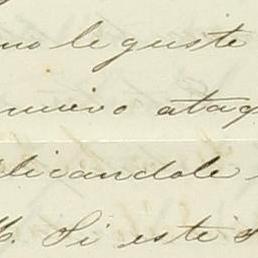 no le guste
nuevo ataq
licandole
Si este